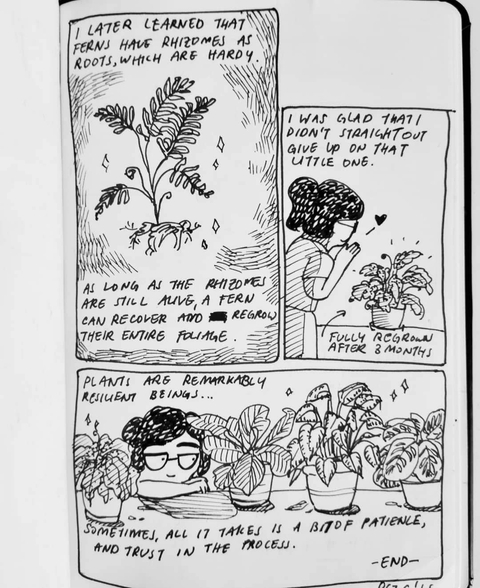 I LATER LEARNED THAT
FERNS HAVE RHIZOMES AS
ROOTS, WHICH ARE HARDY.
AS LONG AS THE RHIZOMES
ARE STILL ALIVE, A FERN
CAN RECOVER AND REGROW
THEIR ENTIRE FOLIAGE.
I WAS GLAD THAT I
DIDN'T STRAIGHT OUT
GIVE UP ON THAT
LITTLE ONE.
FULLY REGROWN
AFTER 3 MONTHS
PLANTS ARE REMARKABLY
RESILIENT BEINGS...
SOMETIMES, ALL IT TAKES IS A BIT OF PATIENCE,
AND TRUST IN THE PROCESS.
-END-